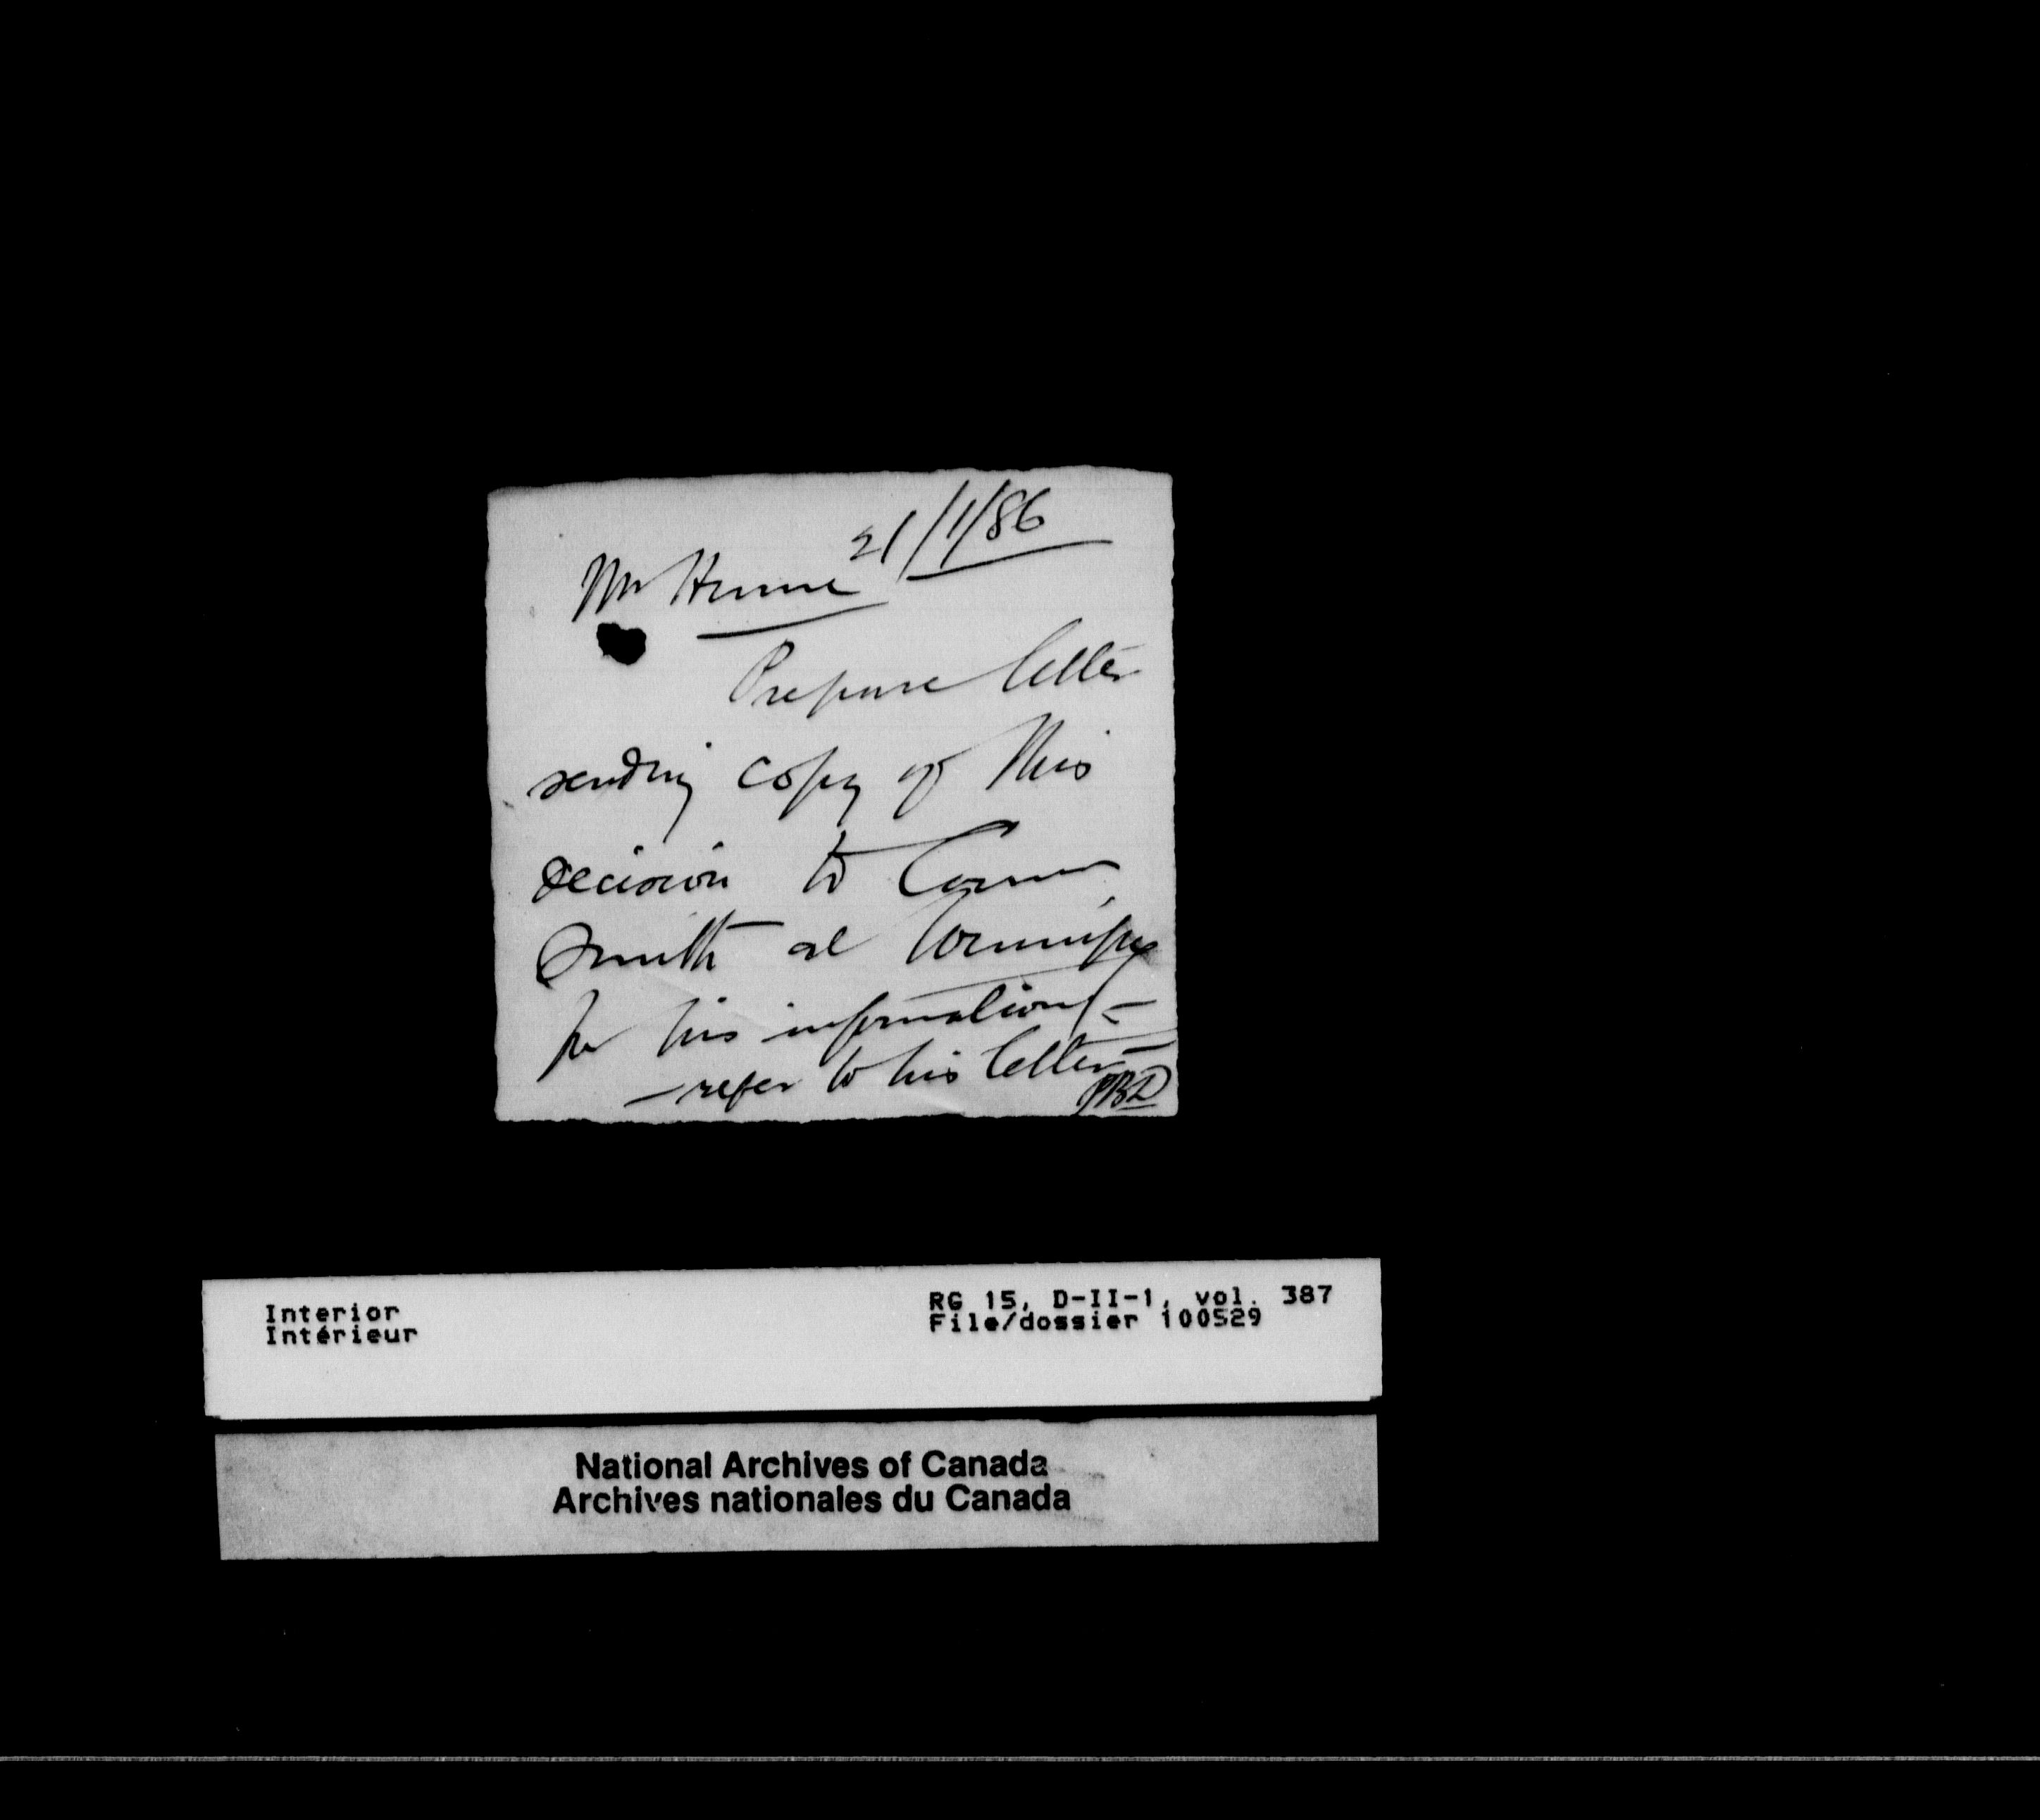 21/1/86
Mr Hume
Prepare letter
sending copy of this
decision to Comr
Smith at Winnipeg
for his information –
– refer to his letter –
Interior
Intérieur
RG 15, D-II-1, vol. 387
File/dossier 100529
National Archives of Canada
Archives nationales du Canada